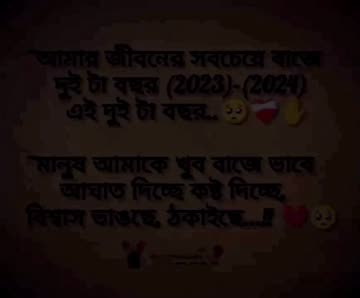 "আমার জীবনের সবচেয়ে বাজে
দুই টা বছর (2023)-(2024)
এই দুই টা বছর..🥺❤️‍🩹✋
"মানুষ আমাকে খুব বাজে ভাবে
আঘাত দিচ্ছে কষ্ট দিচ্ছে,
বিশ্বাস ভাঙছে, ঠকাইছে....!! ❤️🥺